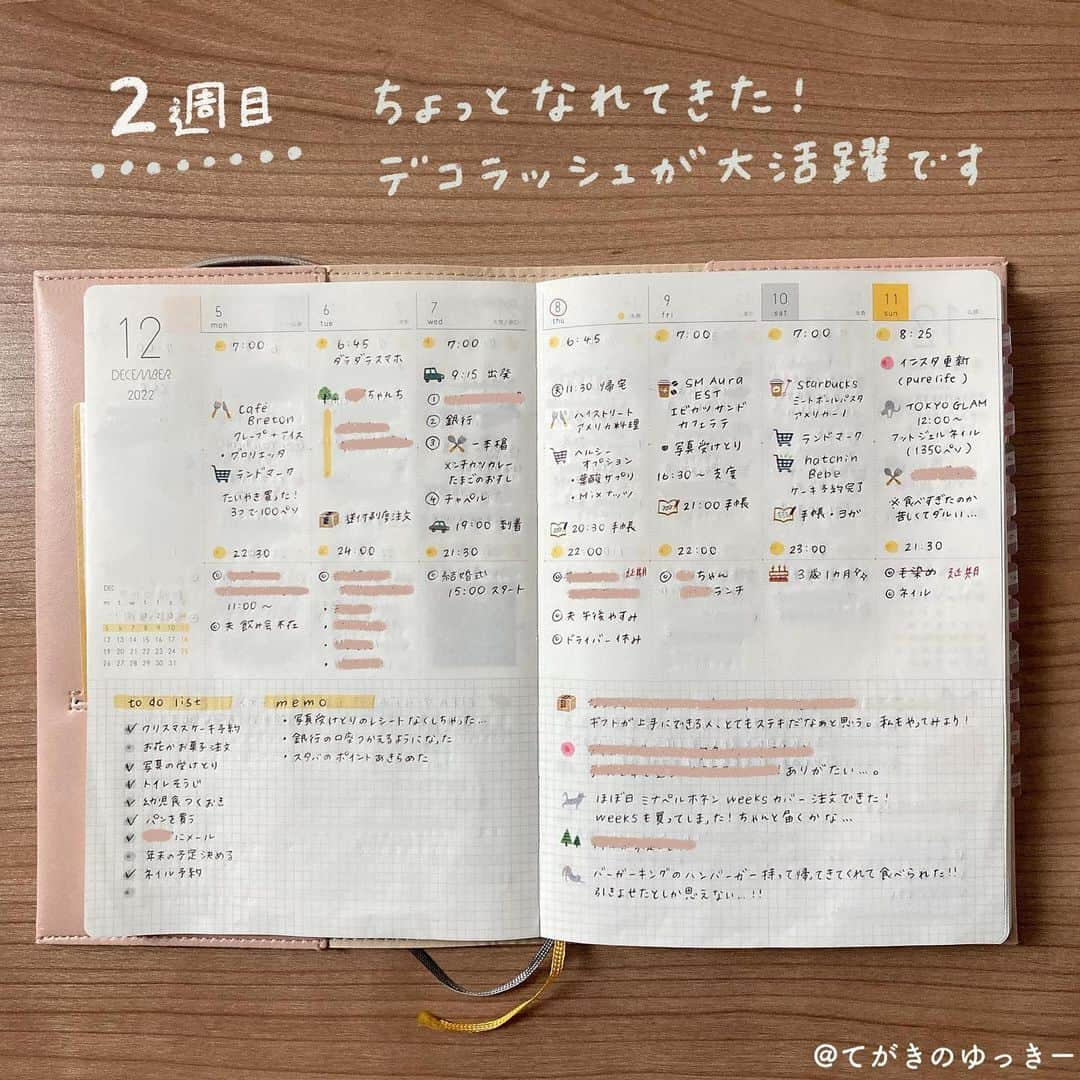 2週目
ちょっとなれてきた!
デコラッシュが大活躍です
12
DECEMBER
2022
5
mon
7:00
café
Breton
クレープ+アイス
・グロリエッタ
ランドマーク
たいやき買った!
3つで100ペソ
22:30
11:00〜
夫 飲み会不在
6
tue
6:45
ダラダラスマホ
ちゃんち
送付制度注文
24:00
7
wed
7:00
9:15 出発
①
② 銀行
③ 一本槍
メンチカツカレー
たまごのおすし
④ チャペル
19:00 到着
21:30
結婚式
15:00 スタート
8
thu
6:45
11:30 帰宅
ハイストリート
アメリカ料理
ヘルシー
オプション
・葉酸サプリ
・Mixナッツ
20:30 手帳
22:00
延期
夫 午後やすみ
ドライバー休み
9
fri
7:00
SM Aura
EST
エビカツサンド
カフェラテ
写真受けとり
16:30〜 支度
21:00 手帳
22:00
ちゃん
ランチ
10
sat
7:00
starbucks
ミートボールパスタ
アメリカーノ
ランドマーク
hatchin
Bebe
ケーキ予約完了
手帳・ヨガ
23:00
3歳1カ月
11
sun
8:25
インスタ更新
(pure life)
TOKYO GLAM
12:00〜
フットジェルネイル
(1350ペソ)
※食べすぎたのか
苦しくてダルい…
21:30
毛染め 延期
ネイル
DEC
m t w t f s s
5 6 7 8 9 10 11
12 13 14 15 16 17 18
19 20 21 22 23 24 25
26 27 28 29 30 31
to do list
クリスマスケーキ予約
お花かお菓子注文
写真の受けとり
トイレそうじ
幼児食つくおき
パンを買う
にメール
年末の予定決める
ネイル予約
memo
・写真受けとりのレシートなくしちゃった…
・銀行の口座つかえるようになった
・スタバのポイントあきらめた
ギフトが上手にできる人、とてもステキだなぁと思う。私もやってみよう!
ありがたい…。
ほぼ日 ミナペルホネン weeksカバー 注文できた!
weeksを買ってしまった! ちゃんと届くかな…
バーガーキングのハンバーガー 持って帰ってきてくれて食べられた!!
引きよせたとしか思えない…!!
@てがきのゆっきー